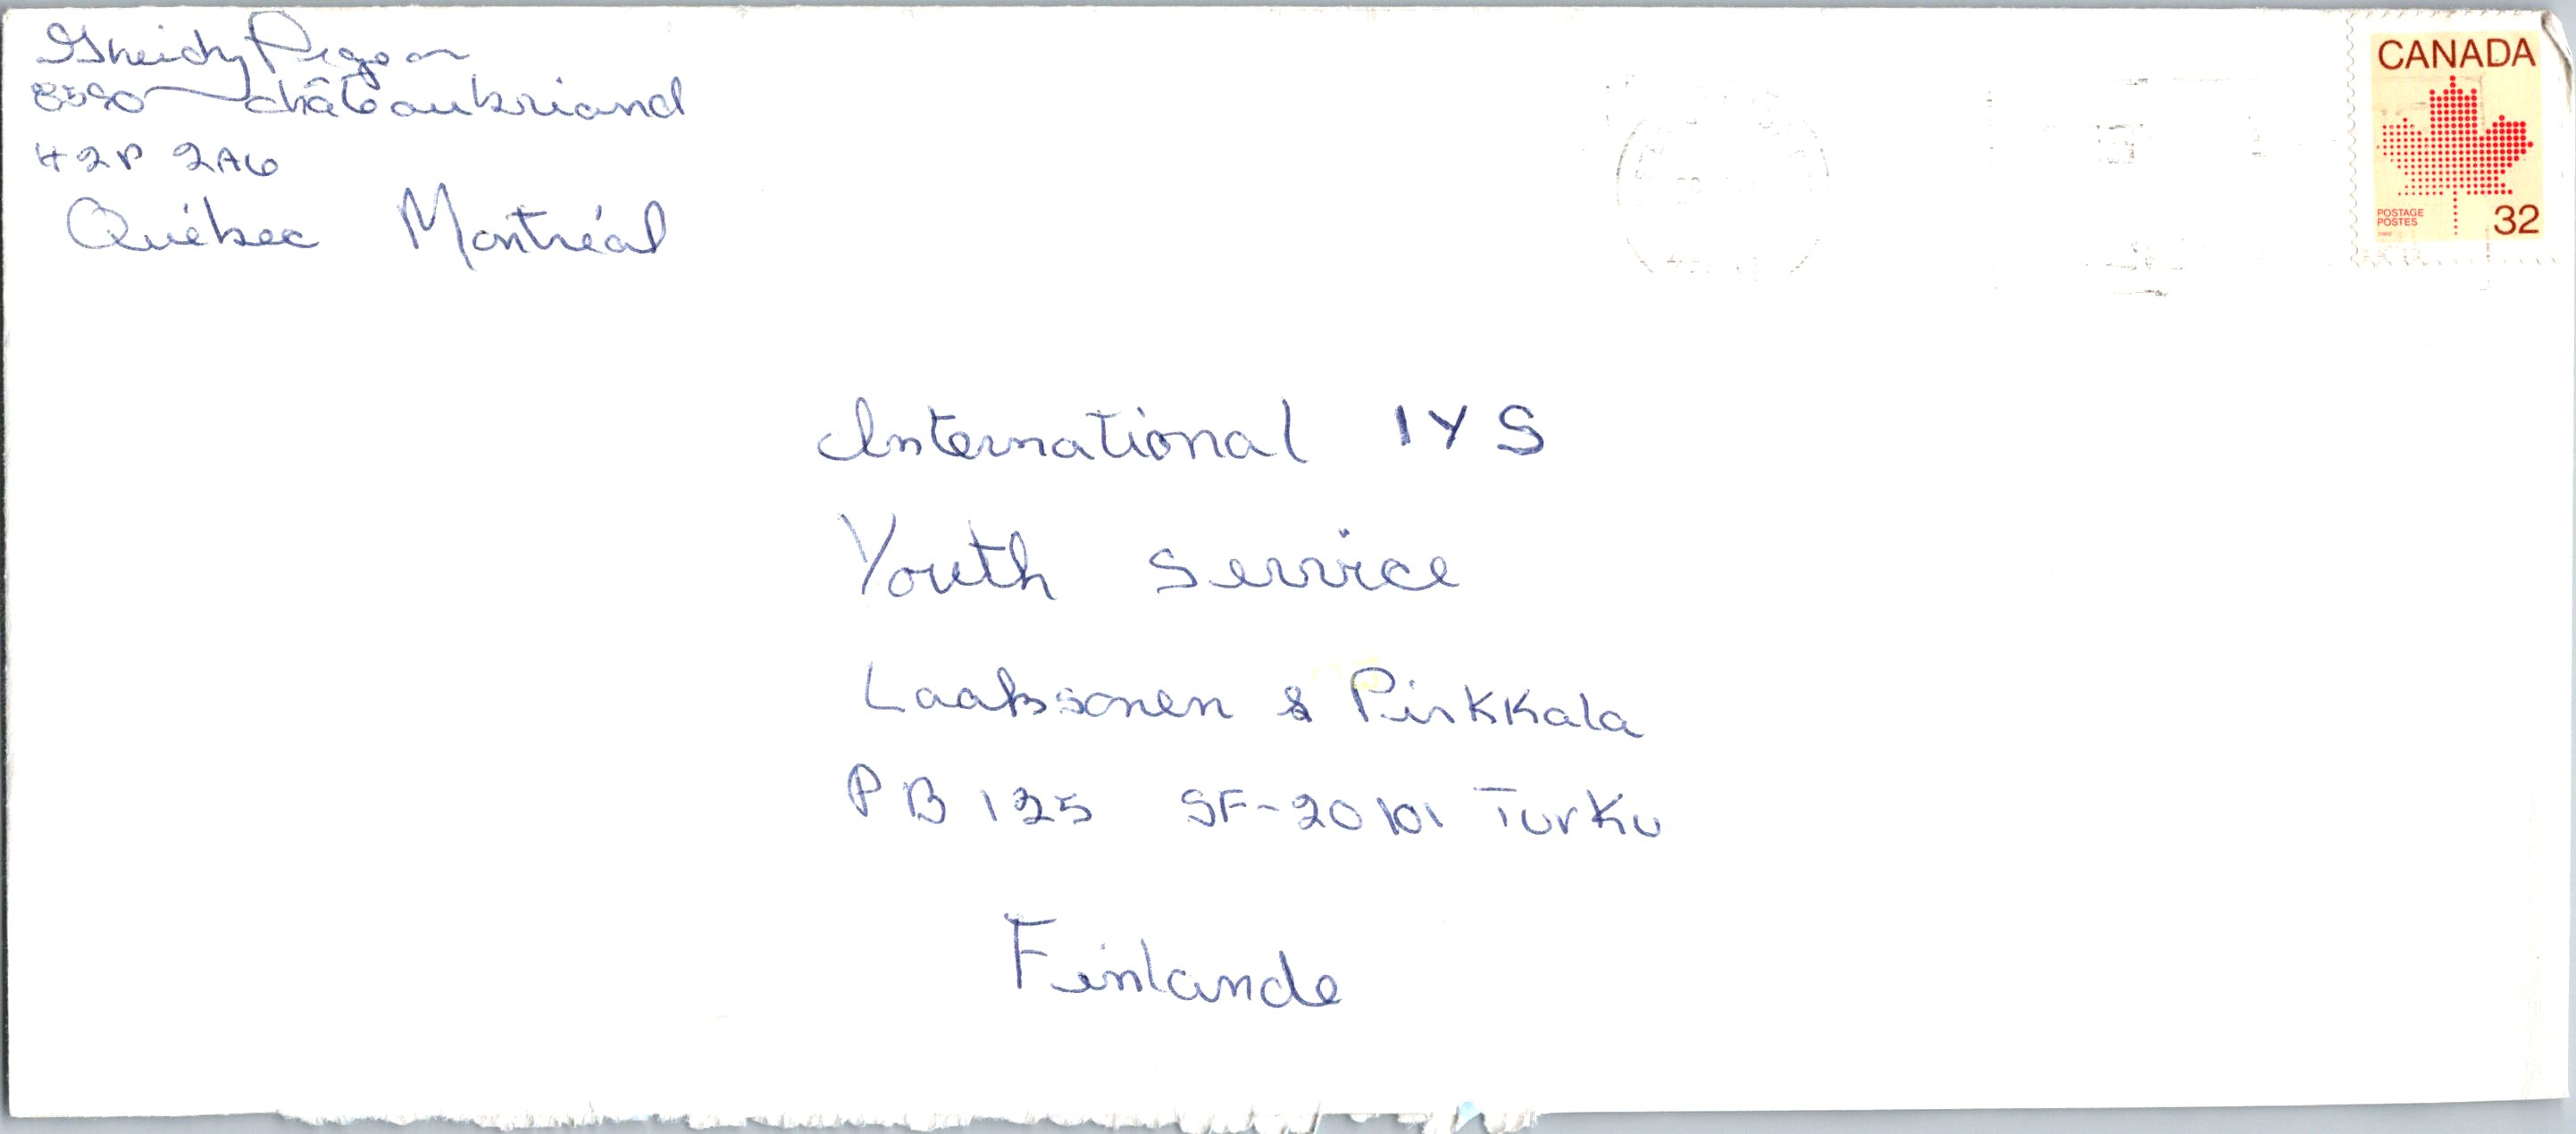 8590 châteaubriand
H2P 2A6
Québec Montréal
CANADA
POSTAGE
POSTES
32
International IYS
Youth Service
Laaksonen & Pirkkala
PB 125 SF-20101 Turku
Finlande